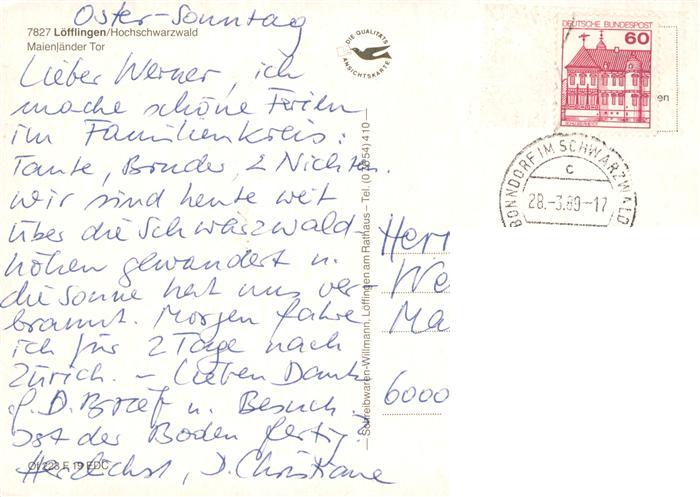 Oster-Sonntag
7827 Löffingen/Hochschwarzwald
Maienländer Tor
DIE QUALITÄTS
ANSICHTSKARTE
Lieber Werner, ich
mache schöne Ferien
im Familienkreis:
Tante, Bruder, 2 Nichten.
Wir sind heute weit
über die Schwarzwald-
höhen gewandert u.
die Sonne hat uns ver-
brannt. Morgen fahre
ich für 2 Tage nach
Zürich. – Lieben Dank
f. D. Brief u. Besuch.
Ist der Boden fertig?
Herzlichst, D. Christiane
Of 223 E 19 EDC
Schreibwaren-Willmann, Löffingen am Rathaus – Tel. (0 76 54) 410
DEUTSCHE BUNDESPOST
60
en
BONNDORF IM SCHWARZWALD
c
28.-3.89-17
Herr
We
Ma
6000